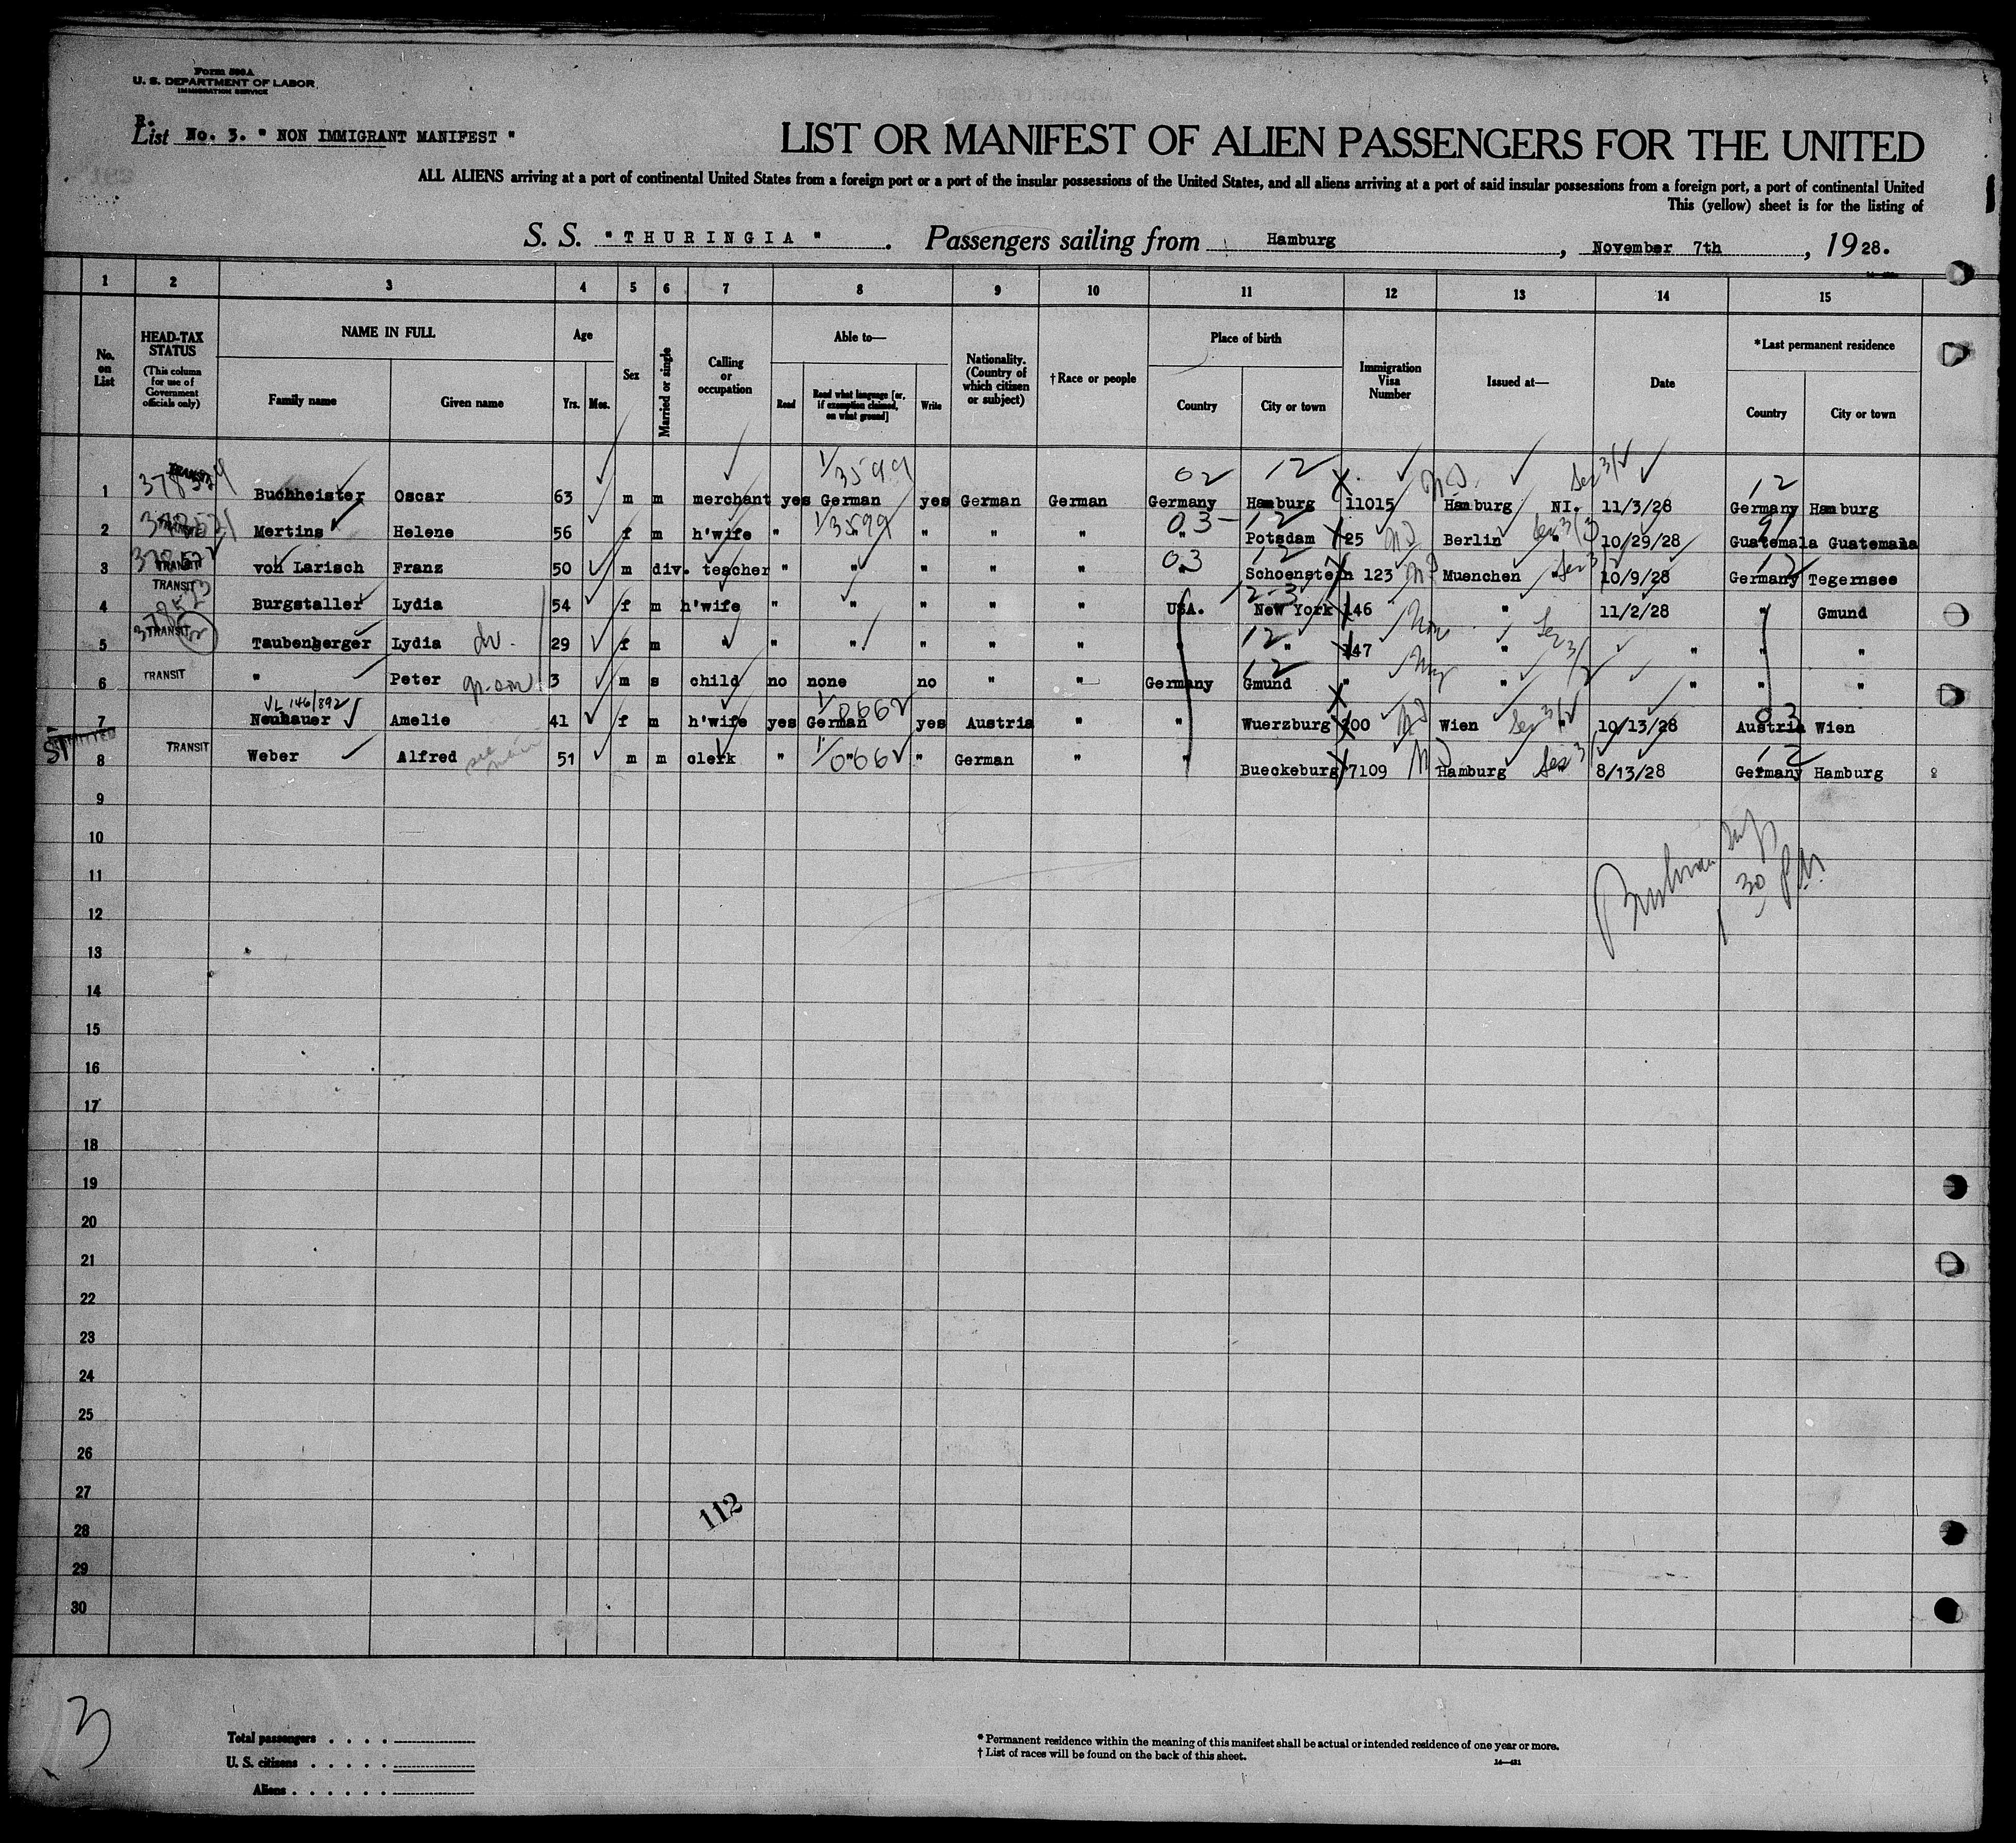 Form 500A
U. S. DEPARTMENT OF LABOR
IMMIGRATION SERVICE
List No. 3. " NON IMMIGRANT MANIFEST "
LIST OR MANIFEST OF ALIEN PASSENGERS FOR THE UNITED
ALL ALIENS arriving at a port of continental United States from a foreign port or a port of the insular possessions of the United States, and all aliens arriving at a port of said insular possessions from a foreign port, a port of continental United
This (yellow) sheet is for the listing of
S. S. " THURINGIA " . Passengers sailing from Hamburg , November 7th , 19 28.
1 2 3 4 5 6 7 8 9 10 11 12 13 14 15
No. on List
HEAD-TAX STATUS (This column for use of Government officials only)
NAME IN FULL
Family name Given name
Age
Yrs. Mos.
Sex
Married or single
Calling or occupation
Able to—
Read Read what language [or, if exemption claimed, on what ground] Write
Nationality. (Country of which citizen or subject)
† Race or people
Place of birth
Country City or town
Immigration Visa Number
Issued at—
Date
*Last permanent residence
Country City or town
1/3599 02 12 12
1 TRANSIT Buchheister Oscar 63 m m merchant yes German yes German German Germany Hamburg 11015 Hamburg NI. 11/3/28 Germany Hamburg
1/3599 03 12
2 TRANSIT Mertins Helene 56 f m h'wife " " " " " " Potsdam 125 Berlin " 10/29/28 Guatemala Guatemala
03 12 12
3 TRANSIT von Larisch Franz 50 m div. teacher " " " " " " Schoenstein 123 Muenchen " 10/9/28 Germany Tegernsee
4 TRANSIT Burgstaller Lydia 54 f m h'wife " " " " " USA. New York 146 " 11/2/28 " Gmund
5 TRANSIT Taubenberger Lydia 29 f m " " " " " " " 147 " " " "
6 TRANSIT " Peter gr. son 3 m s child no none no " " Germany Gmund " " " " "
VL 146/892
7 Neuhauer Amelie 41 f m h'wife yes German yes Austria " " Wuerzburg 200 Wien " 10/13/28 Austria Wien
8 TRANSIT Weber Alfred 51 m m clerk " " " German " " Bueckeburg 7109 Hamburg " 8/13/28 Germany Hamburg
9
10
11
12
13
14
15
16
17
18
19
20
21
22
23
24
25
26
27
112
28
29
30
3
Total passengers . . . .
U. S. citizens . . . . .
Aliens . . . . . .
* Permanent residence within the meaning of this manifest shall be actual or intended residence of one year or more.
† List of races will be found on the back of this sheet.